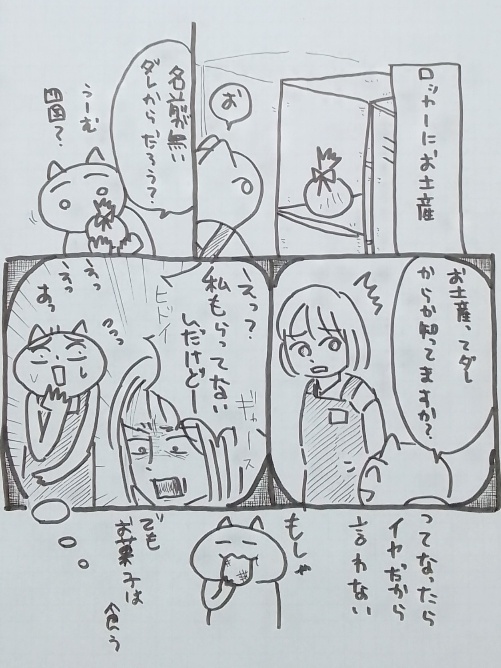 ロッカーにお土産
お
名前無い
ダレからだろう?
うーむ
四国?
お土産ってダレ
からか知ってますか?
えっ?
私もらってない
んだけどー
ヒドイ
ギャース
えっ
えっ
あっ
ってなったら
イヤだから
言わない
もしゃ
でも
お菓子は
食う